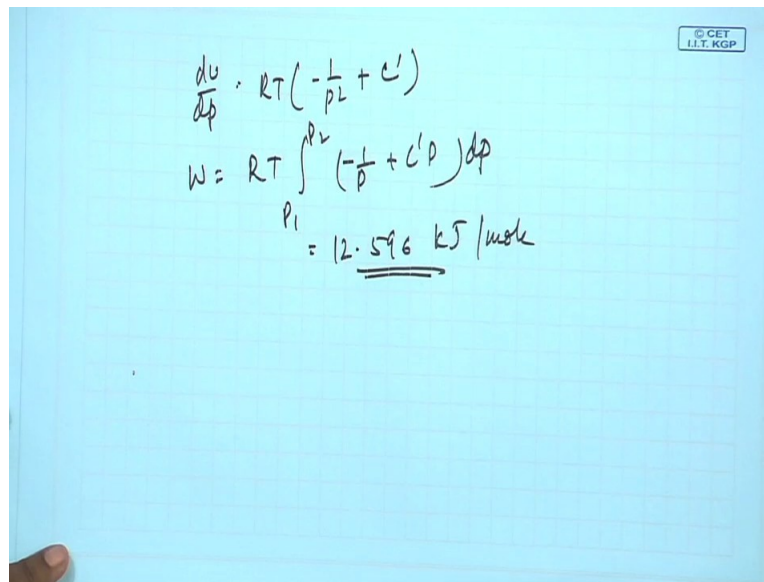 © CET
I.I.T. KGP
dv/dp = RT(-1/p2 + C')
W = RT ∫P1^P2 (-1/p + C'P) dp
= 12.596 kJ/mole